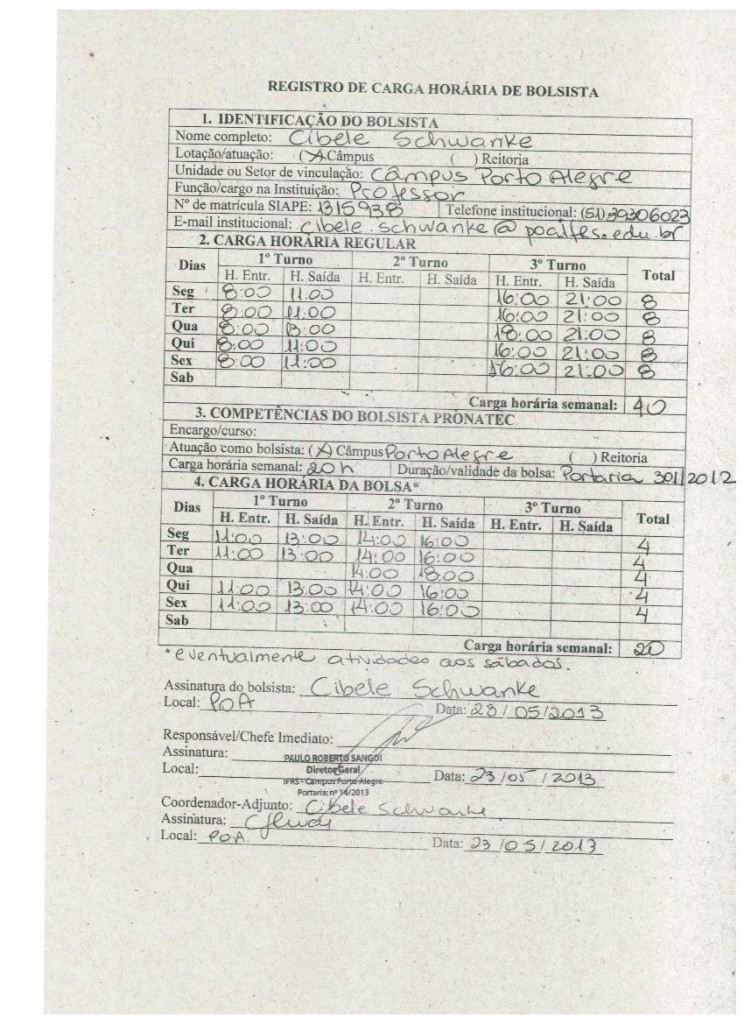 REGISTRO DE CARGA HORÁRIA DE BOLSISTA
1. IDENTIFICAÇÃO DO BOLSISTA
Nome completo: Cibele Schwanke
Lotação/atuação: (X) Câmpus ( ) Reitoria
Unidade ou Setor de vinculação: Câmpus Porto Alegre
Função/cargo na Instituição: Professor
Nº de matrícula SIAPE: 1315938 Telefone institucional: (51) 39306023
E-mail institucional: cibele.schwanke@poa.ifrs.edu.br
2. CARGA HORÁRIA REGULAR
Dias 1º Turno 2º Turno 3º Turno Total
H. Entr. H. Saída H. Entr. H. Saída H. Entr. H. Saída
Seg 8:00 11:00 16:00 21:00 8
Ter 8:00 11:00 16:00 21:00 8
Qua 8:00 13:00 18:00 21:00 8
Qui 8:00 11:00 16:00 21:00 8
Sex 8:00 11:00 16:00 21:00 8
Sab
Carga horária semanal: 40
3. COMPETÊNCIAS DO BOLSISTA PRONATEC
Encargo/curso:
Atuação como bolsista: (X) Câmpus Porto Alegre ( ) Reitoria
Carga horária semanal: 20h Duração/validade da bolsa: Portaria 301/2012
4. CARGA HORÁRIA DA BOLSA*
Dias 1º Turno 2º Turno 3º Turno Total
H. Entr. H. Saída H. Entr. H. Saída H. Entr. H. Saída
Seg 11:00 13:00 14:00 16:00 4
Ter 11:00 13:00 14:00 16:00 4
Qua 14:00 18:00 4
Qui 11:00 13:00 14:00 16:00 4
Sex 11:00 13:00 14:00 16:00 4
Sab
Carga horária semanal: 20
*eventualmente atividades aos sábados.
Assinatura do bolsista: Cibele Schwanke
Local: POA Data: 23/05/2013
Responsável/Chefe Imediato:
Assinatura: PAULO ROBERTO SANGOI
Diretor Geral
Local: IFRS - Campus Porto Alegre Data: 23/05/2013
Portaria: nº 14/2013
Coordenador-Adjunto: Cibele Schwanke
Assinatura:
Local: POA Data: 23/05/2013